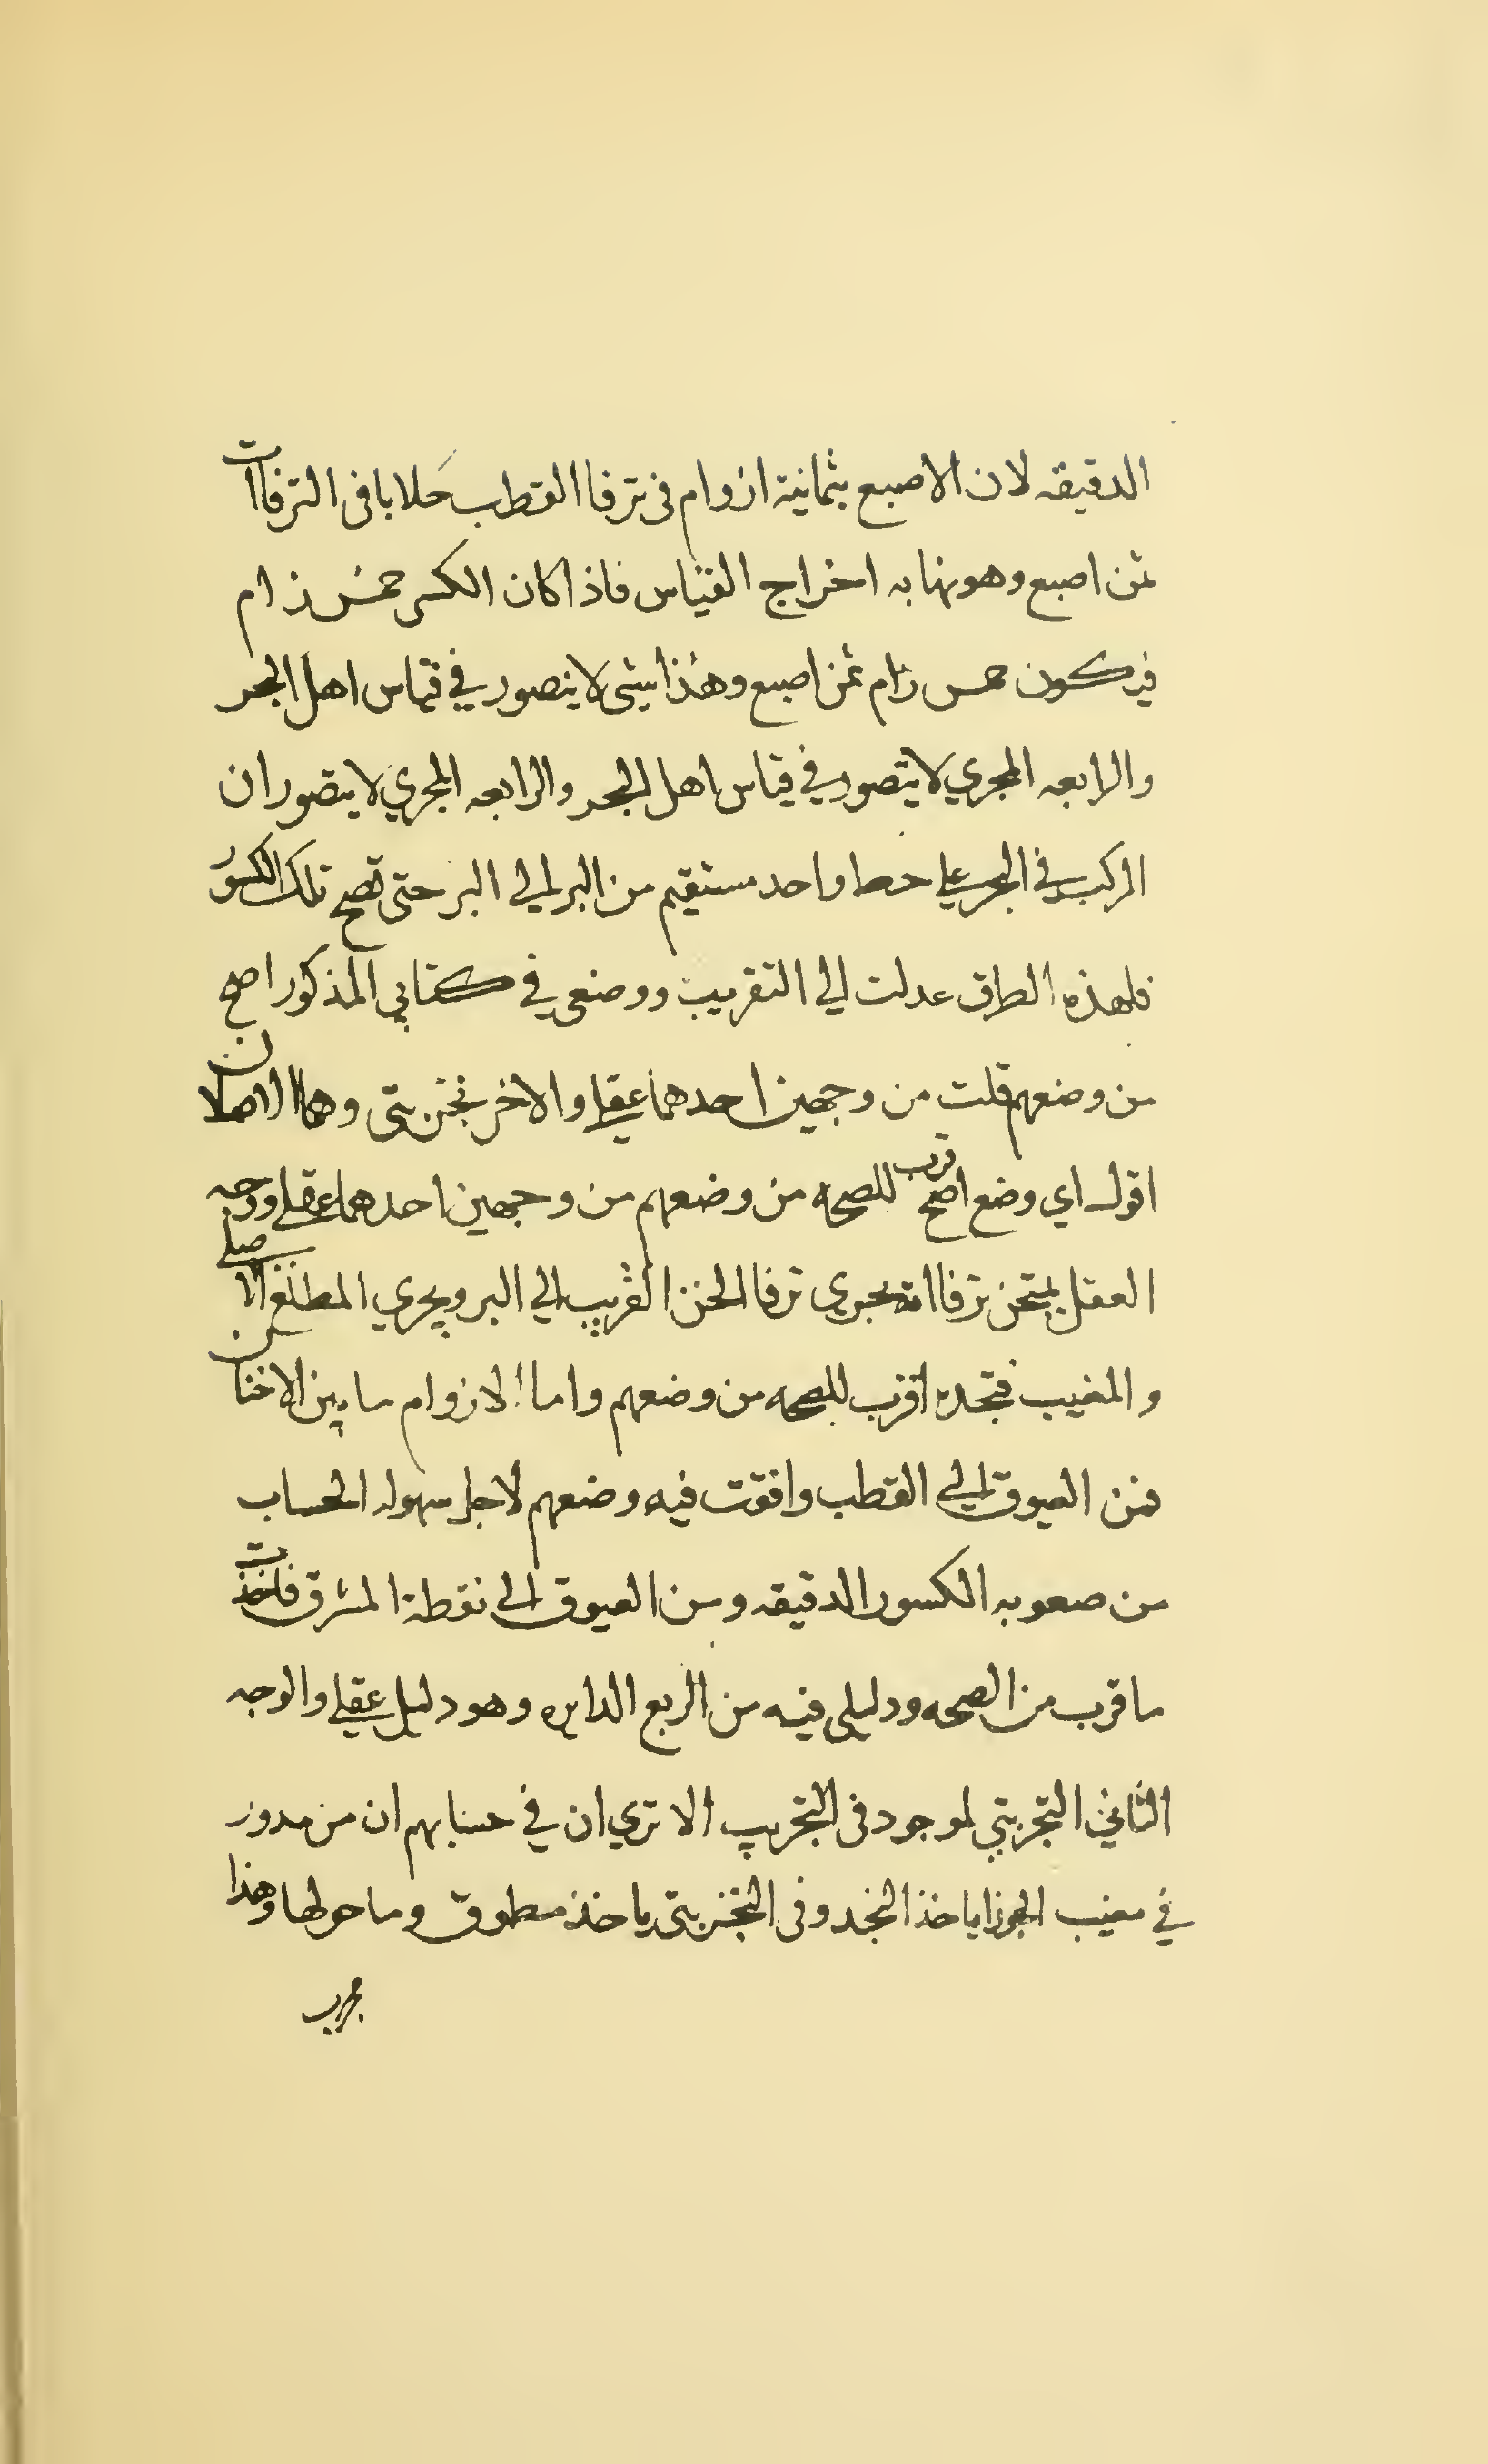 الدقيقه لان الاصبع بثمانية ازوام في ترفا القطب خلا باقي الترفاات
ثمن اصبع وهو نهايه اخراج القياس فاذا كان الكسر خمس زام
فيكون خمس زام ثمن اصبع وهذا شي لا يتصور في قياس اهل البحر
والرابعه المجري لا يتصور في قياس اهل البحر والرابعه المجري لا يتصور ان
المركب في البحر علي خط واحد مستقيم من البر الي البر حتي تصح تلك الكسور
فلهذه الطرق عدلت الي التقريب ووضعي في كتابي المذكور اصح
من وضعهم قلت من وجهين احدهما عقلي والاخر تجربتي وهما الاصلان
اقول اي وضع اصح قرب للصحه من وضعهم من وجهين احدهما عقلي ووجه
العقل يمتحن ترفاات مجري ترفا الخن القريب الي البر ويجري المطلع الاصلي
والمغيب فتجده اقرب للصحه من وضعهم واما الازوام ما بين الاخنان
فمن العيوق الي القطب وافقت فيه وضعهم لاجل سهوله الحساب
من صعوبه الكسور الدقيقه ومن العيوق الي نقطة المشرق فاخذت
ما قرب من الصحه ودليلي فيه من الربع الدايره وهو دليل عقلي والوجه
الثاني التجربتي لموجود في التجريب الا تري ان في حسابهم ان من مدور
في مغيب الجوزا ياخذ النجد وفي التجربتي ياخذ مطموق وما حولها وهذا
مجرب